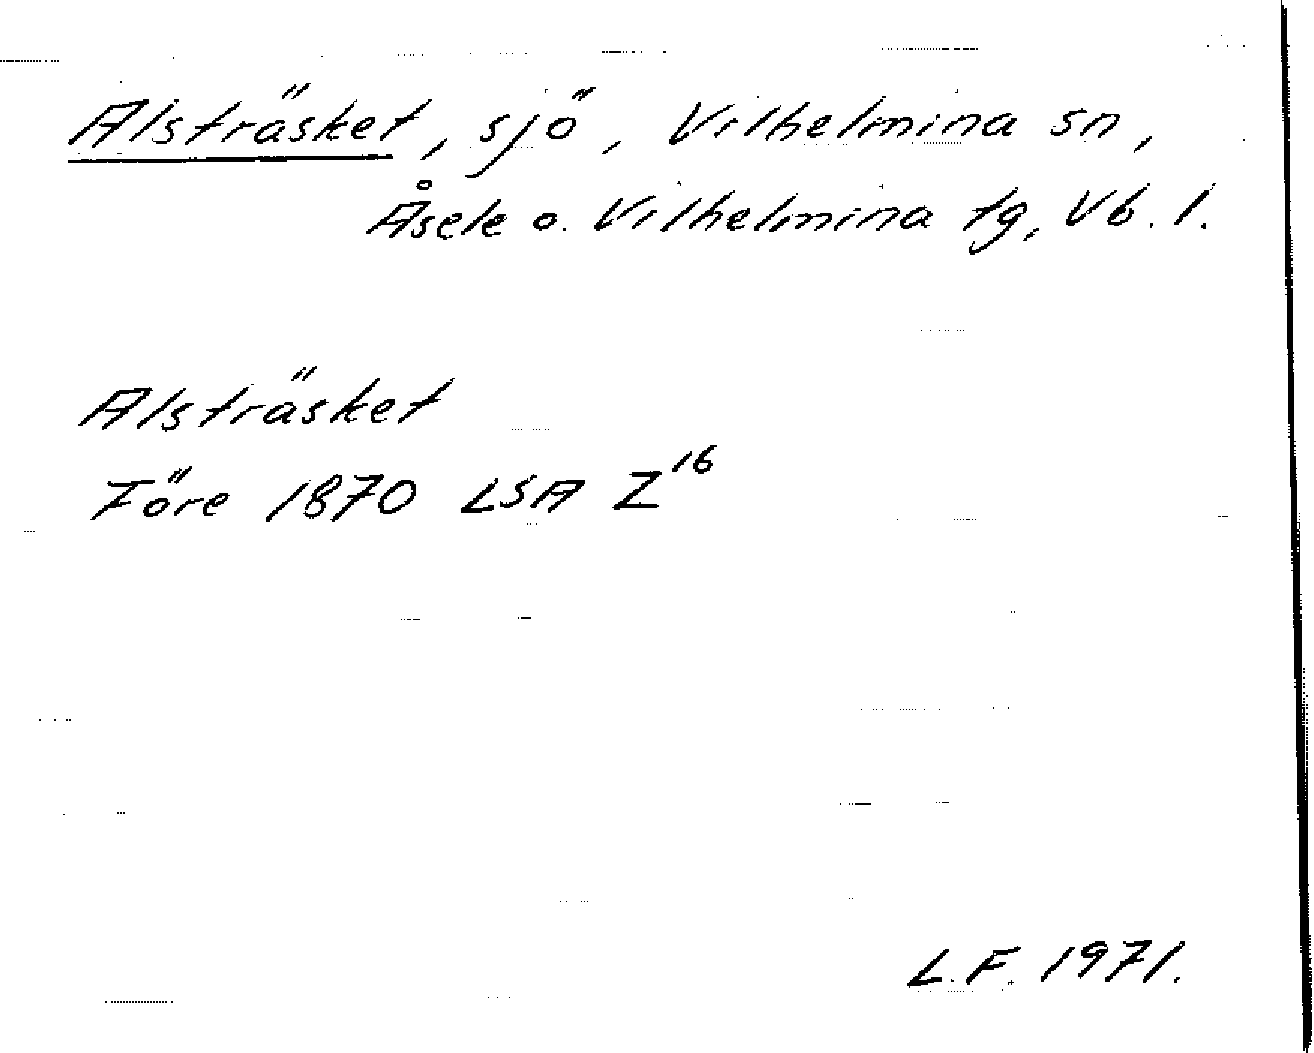 Alsträsket, sjö, Vilhelmina sn,
Åsele o. Vilhelmina tg, Vb. l.
Alsträsket
Före 1870 LSA Z16
L.F. 1971.